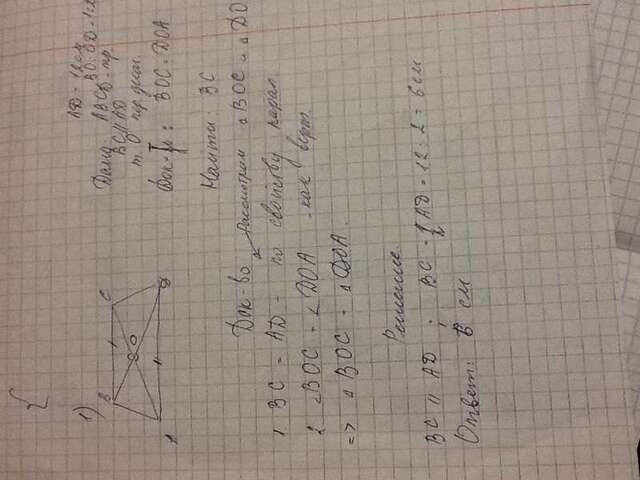 1)
B C
O
A D
Дано AD = 12 см
ABCD - пр.
BC || AD BO : OD = 1:2
т. O - пр. диаг.
Док-ть: BOC = DOA
Найти BC
Док-во
Рассмотрим △BOC и △DO
1 BC = AD - по свойству парал
2 ∠BOC = ∠DOA - как верт.
=> △BOC = △DOA.
Решение
BC || AD ; BC = 1/2 AD = 12 : 2 = 6 см
Ответ: 6 см